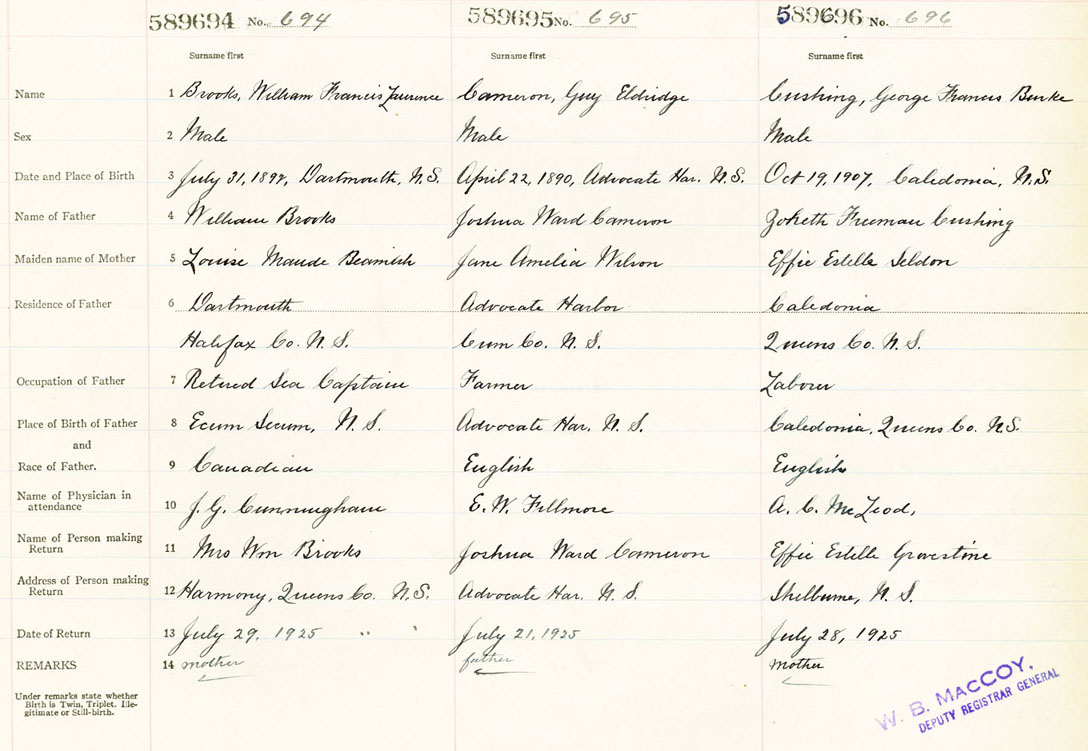 589694 No. 694 589695 No. 695 589696 No. 696
Surname first Surname first Surname first
Name 1 Brooks, William Francis Laurence Cameron, Guy Eldridge Cushing, George Francis Burke
Sex 2 Male Male Male
Date and Place of Birth 3 July 31, Dartmouth, N.S. April 22, 1890, Advocate Har. N.S. Oct 19, 1907, Caledonia, N.S.
Name of Father 4 William Brooks Joshua Ward Cameron Freeman Cushing
Maiden name of Mother 5 Louise Maude Beamish Jane Amelia Wilson Effie Estella Seldon
Residence of Father 6 Dartmouth Advocate Harbor Caledonia
Halifax Co. N.S. Cum Co. N.S. Queens Co. N.S.
Occupation of Father 7 Retired Sea Captain Farmer Labourer
Place of Birth of Father 8 Ecum Secum, N.S. Advocate Har. N.S. Caledonia, Queens Co. N.S.
and
Race of Father. 9 Canadian English English
Name of Physician in
attendance 10 J.G. Cunningham E.W. Fillmore A.C. McLeod,
Name of Person making
Return 11 Mrs Wm Brooks Joshua Ward Cameron Effie Estella
Address of Person making
Return 12 Harmony, Queens Co. N.S. Advocate Har. N.S. Shelburne, N.S.
Date of Return 13 July 29, 1925 July 21, 1925 July 28, 1925
REMARKS 14 mother father mother
Under remarks state whether
Birth is Twin, Triplet. Ille-
gitimate or Still-birth.
W. B. MacCOY,
DEPUTY REGISTRAR GENERAL